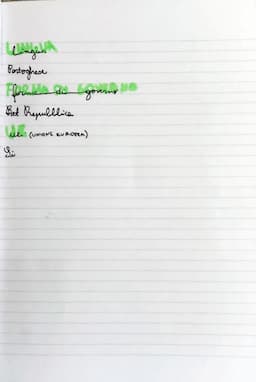 LINGUA
Portoghese
FORMA DI GOVERNO
Repubblica
UE (UNIONE EUROPEA)
Si